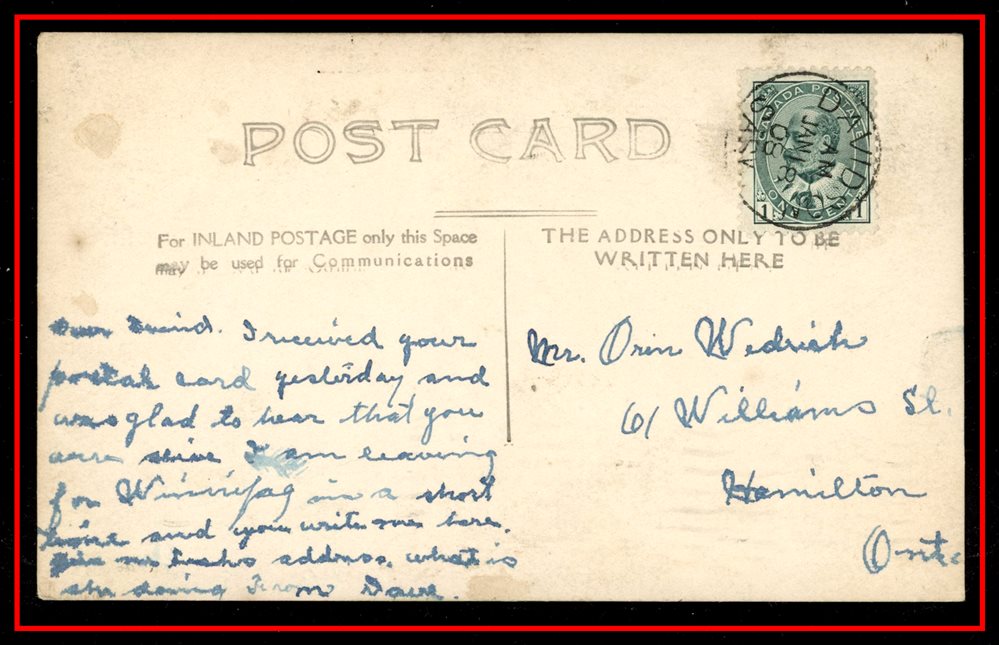 POST CARD
CANADA POSTAGE
ONE CENT
1 1
DAVIDSON
SASK
AM
JAN 18
08
For INLAND POSTAGE only this Space
may be used for Communications
THE ADDRESS ONLY TO BE
WRITTEN HERE
Dear Friend. I received your
postal card yesterday and
was glad to hear that you
were alive I am leaving
for Winnipag in a short
time and you write me here.
Give me address. what is
she doing From Dave.
Mr. Orin Wedrich
61 Williams St.
Hamilton
Ont.